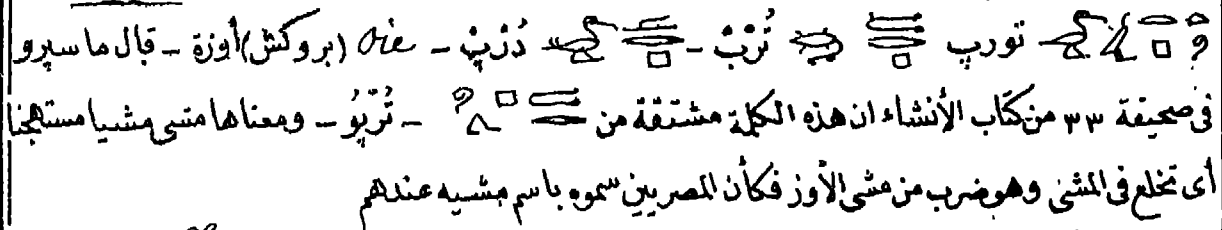 تورپ - تُرْبْ - دُرْپْ - Oie (بروكش) أوزة - قال ماسپرو
فى صحيفة ٣٣ من كتاب الأنشاء ان هذه الكلمة مشتقة من - تُرْپُو - ومعناها مشى مشيا مستهجنا
أى تخلع فى المشى وهو ضرب من مشى الأوز فكأن المصريين سموه باسم مشيه عندهم